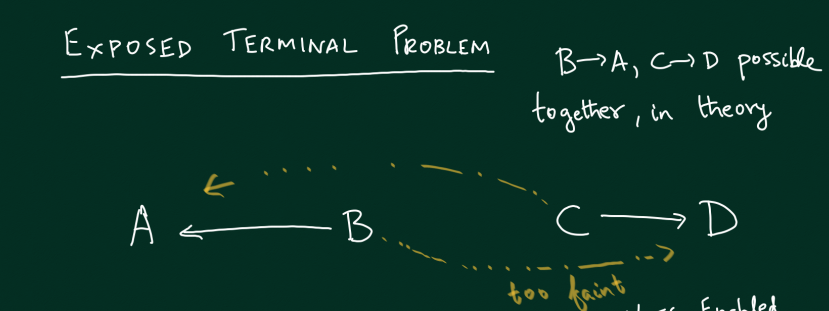 EXPOSED TERMINAL PROBLEM
B→A, C→D possible
together, in theory
A ← B C → D
too faint
Enabled